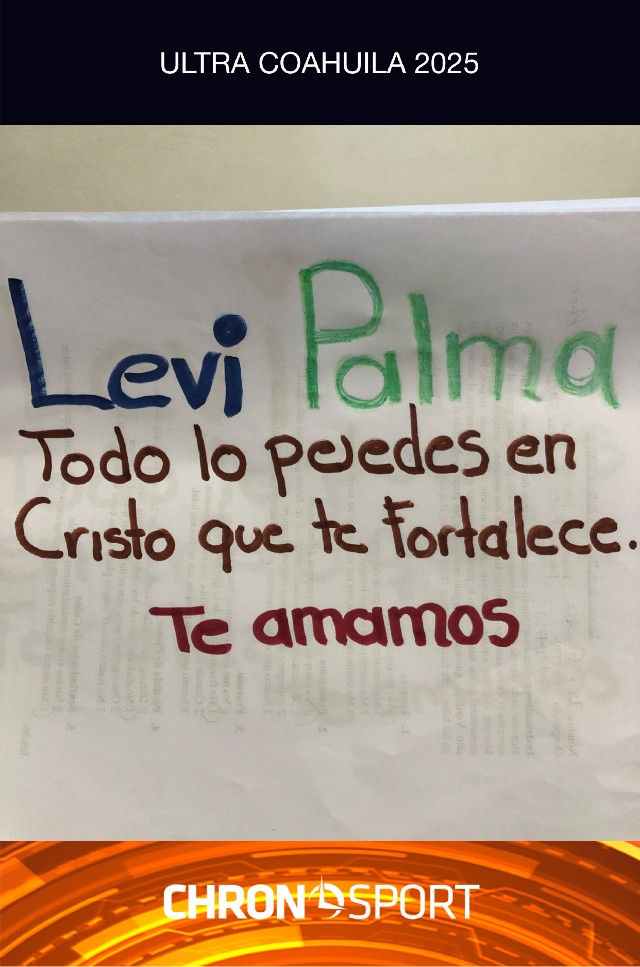 ULTRA COAHUILA 2025
Levi Palma
Todo lo puedes en
Cristo que te Fortalece.
Te amamos
CHRONOSPORT